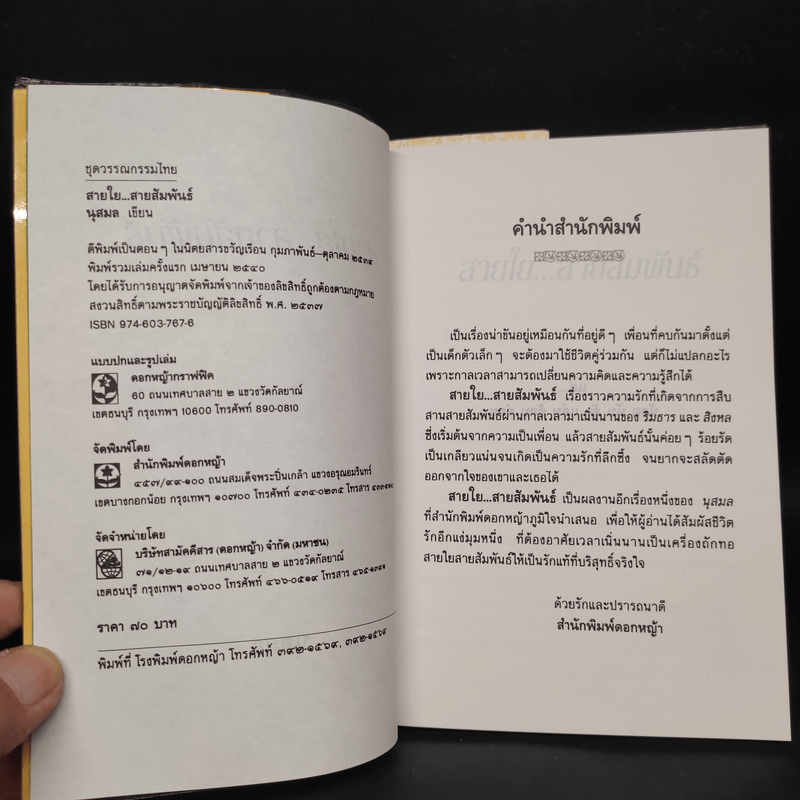 ชุดวรรณกรรมไทย
สายใย...สายสัมพันธ์
นุสมล เขียน
ตีพิมพ์เป็นตอน ๆ ในนิตยสารขวัญเรือน กุมภาพันธ์–ตุลาคม ๒๕๓๔
พิมพ์รวมเล่มครั้งแรก เมษายน ๒๕๔๐
โดยได้รับการอนุญาตจัดพิมพ์จากเจ้าของลิขสิทธิ์ถูกต้องตามกฎหมาย
สงวนสิทธิ์ตามพระราชบัญญัติลิขสิทธิ์ พ.ศ. ๒๕๓๗
ISBN 974-603-767-6
แบบปกและรูปเล่ม
ดอกหญ้ากราฟฟิค
60 ถนนเทศบาลสาย ๒ แขวงวัดกัลยาณ์
เขตธนบุรี กรุงเทพฯ 10600 โทรศัพท์ 890-0810
จัดพิมพ์โดย
สำนักพิมพ์ดอกหญ้า
๔๕๗/๙๙-๑๐๐ ถนนสมเด็จพระปิ่นเกล้า แขวงอรุณอมรินทร์
เขตบางกอกน้อย กรุงเทพฯ ๑๐๗๐๐ โทรศัพท์ ๔๓๔-๐๒๓๕ โทรสาร
จัดจำหน่ายโดย
บริษัทสามัคคีสาร (ดอกหญ้า) จำกัด (มหาชน)
๗๑/๑๒-๑๙ ถนนเทศบาลสาย ๒ แขวงวัดกัลยาณ์
เขตธนบุรี กรุงเทพฯ ๑๐๖๐๐ โทรศัพท์ ๔๖๖-๐๕๑๙ โทรสาร ๔๖๕-๑๓๙๑
ราคา ๗๐ บาท
พิมพ์ที่ โรงพิมพ์ดอกหญ้า โทรศัพท์ ๓๙๒-๑๕๖๙, ๓๙๒-๑๕๖๙
คำนำสำนักพิมพ์
เป็นเรื่องน่าขันอยู่เหมือนกันที่อยู่ดี ๆ เพื่อนที่คบกันมาตั้งแต่
เป็นเด็กตัวเล็ก ๆ จะต้องมาใช้ชีวิตคู่ร่วมกัน แต่ก็ไม่แปลกอะไร
เพราะกาลเวลาสามารถเปลี่ยนความคิดและความรู้สึกได้
สายใย...สายสัมพันธ์ เรื่องราวความรักที่เกิดจากการสืบ
สานสายสัมพันธ์ผ่านกาลเวลามาเนิ่นนานของ ริมธาร และ สิงหล
ซึ่งเริ่มต้นจากความเป็นเพื่อน แล้วสายสัมพันธ์นั้นค่อย ๆ ร้อยรัด
เป็นเกลียวแน่นจนเกิดเป็นความรักที่ลึกซึ้ง จนยากจะสลัดตัด
ออกจากใจของเขาและเธอได้
สายใย...สายสัมพันธ์ เป็นผลงานอีกเรื่องหนึ่งของ นุสมล
ที่สำนักพิมพ์ดอกหญ้าภูมิใจนำเสนอ เพื่อให้ผู้อ่านได้สัมผัสชีวิต
รักอีกแง่มุมหนึ่ง ที่ต้องอาศัยเวลาเนิ่นนานเป็นเครื่องถักทอ
สายใยสายสัมพันธ์ให้เป็นรักแท้ที่บริสุทธิ์จริงใจ
ด้วยรักและปรารถนาดี
สำนักพิมพ์ดอกหญ้า